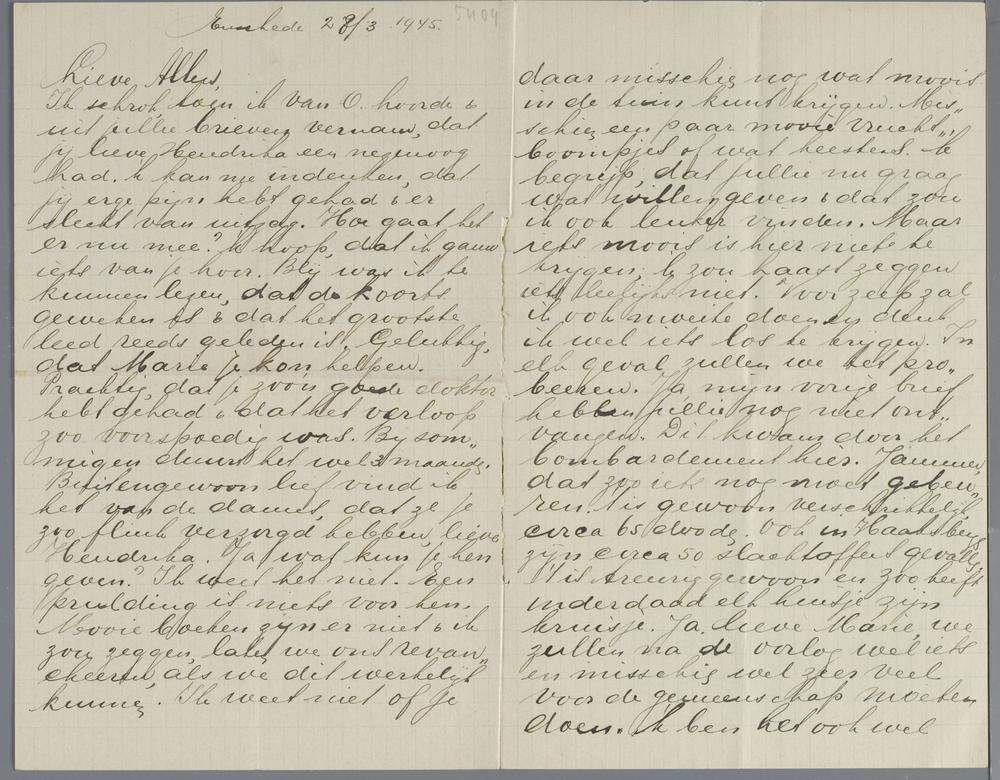 Enschede 28/3 1945.
5404
Lieve Allen,
Ik schrok, toen ik van O. hoorde &
uit jullie brieven vernam, dat
jij lieve Hendrika een negenoog
had. Ik kan me indenken, dat
jij erge pijn hebt gehad & er
slecht van uitzag. Hoe gaat het
er nu mee? Ik hoop, dat ik gauw
iets van je hoor. Blij was ik te
kunnen lezen, dat de koorts
geweken is & dat het grootste
leed reeds geleden is. Gelukkig,
dat Marie je kon helpen.
Prachtig, dat je zoon goede doktor
hebt gehad & dat het verloop
zoo voorspoedig was. Bij som„
migen duurt het wel 3 maand.
Buitengewoon lief vind ik
het van de dames, dat ze je
zoo flink verzorgd hebben, lieve
Hendrika. Ja wat kun je hen
geven? Ik weet het niet. Een
pudding is niets voor hen.
Mooie boeken zijn er niet & ik
zou zeggen, laten we ons revan„
cheeren, als we dit werkelijk
kunnen. Ik weet niet of je
daar misschien nog wat moois
in de tuin kunt krijgen. Mis„
schien een paar mooie vrucht„
boompjes of wat heesters. Ik
begrijp, dat jullie nu graag
wat willen geven & dat zou
ik ook leuker vinden. Maar
iets moois is hier niets te
krijgen; ik zou haast zeggen
iets leelijks niet. Voor zeep zal
ik ook moeite doen en denk
ik wel iets los te krijgen. In
elk geval zullen we het pro„
beeren. Ja mijn vorige brief
hebben jullie nog niet ont„
vangen. Dit kwam door het
bombardement hier. Jammer,
dat zoo iets nog moet gebeu„
ren. 't is gewoon verschrikkelijk
circa 65 doode. Ook in Haaksberg
zijn circa 50 slachtoffers gevallen
't is treurig gewoon en zoo heeft
inderdaad elk huisje zijn
kruisje. Ja, lieve Marie, we
zullen na de oorlog wel iets
en misschien wel zeer veel
voor de gemeenschap moeten
doen. Ik ben het ook wel